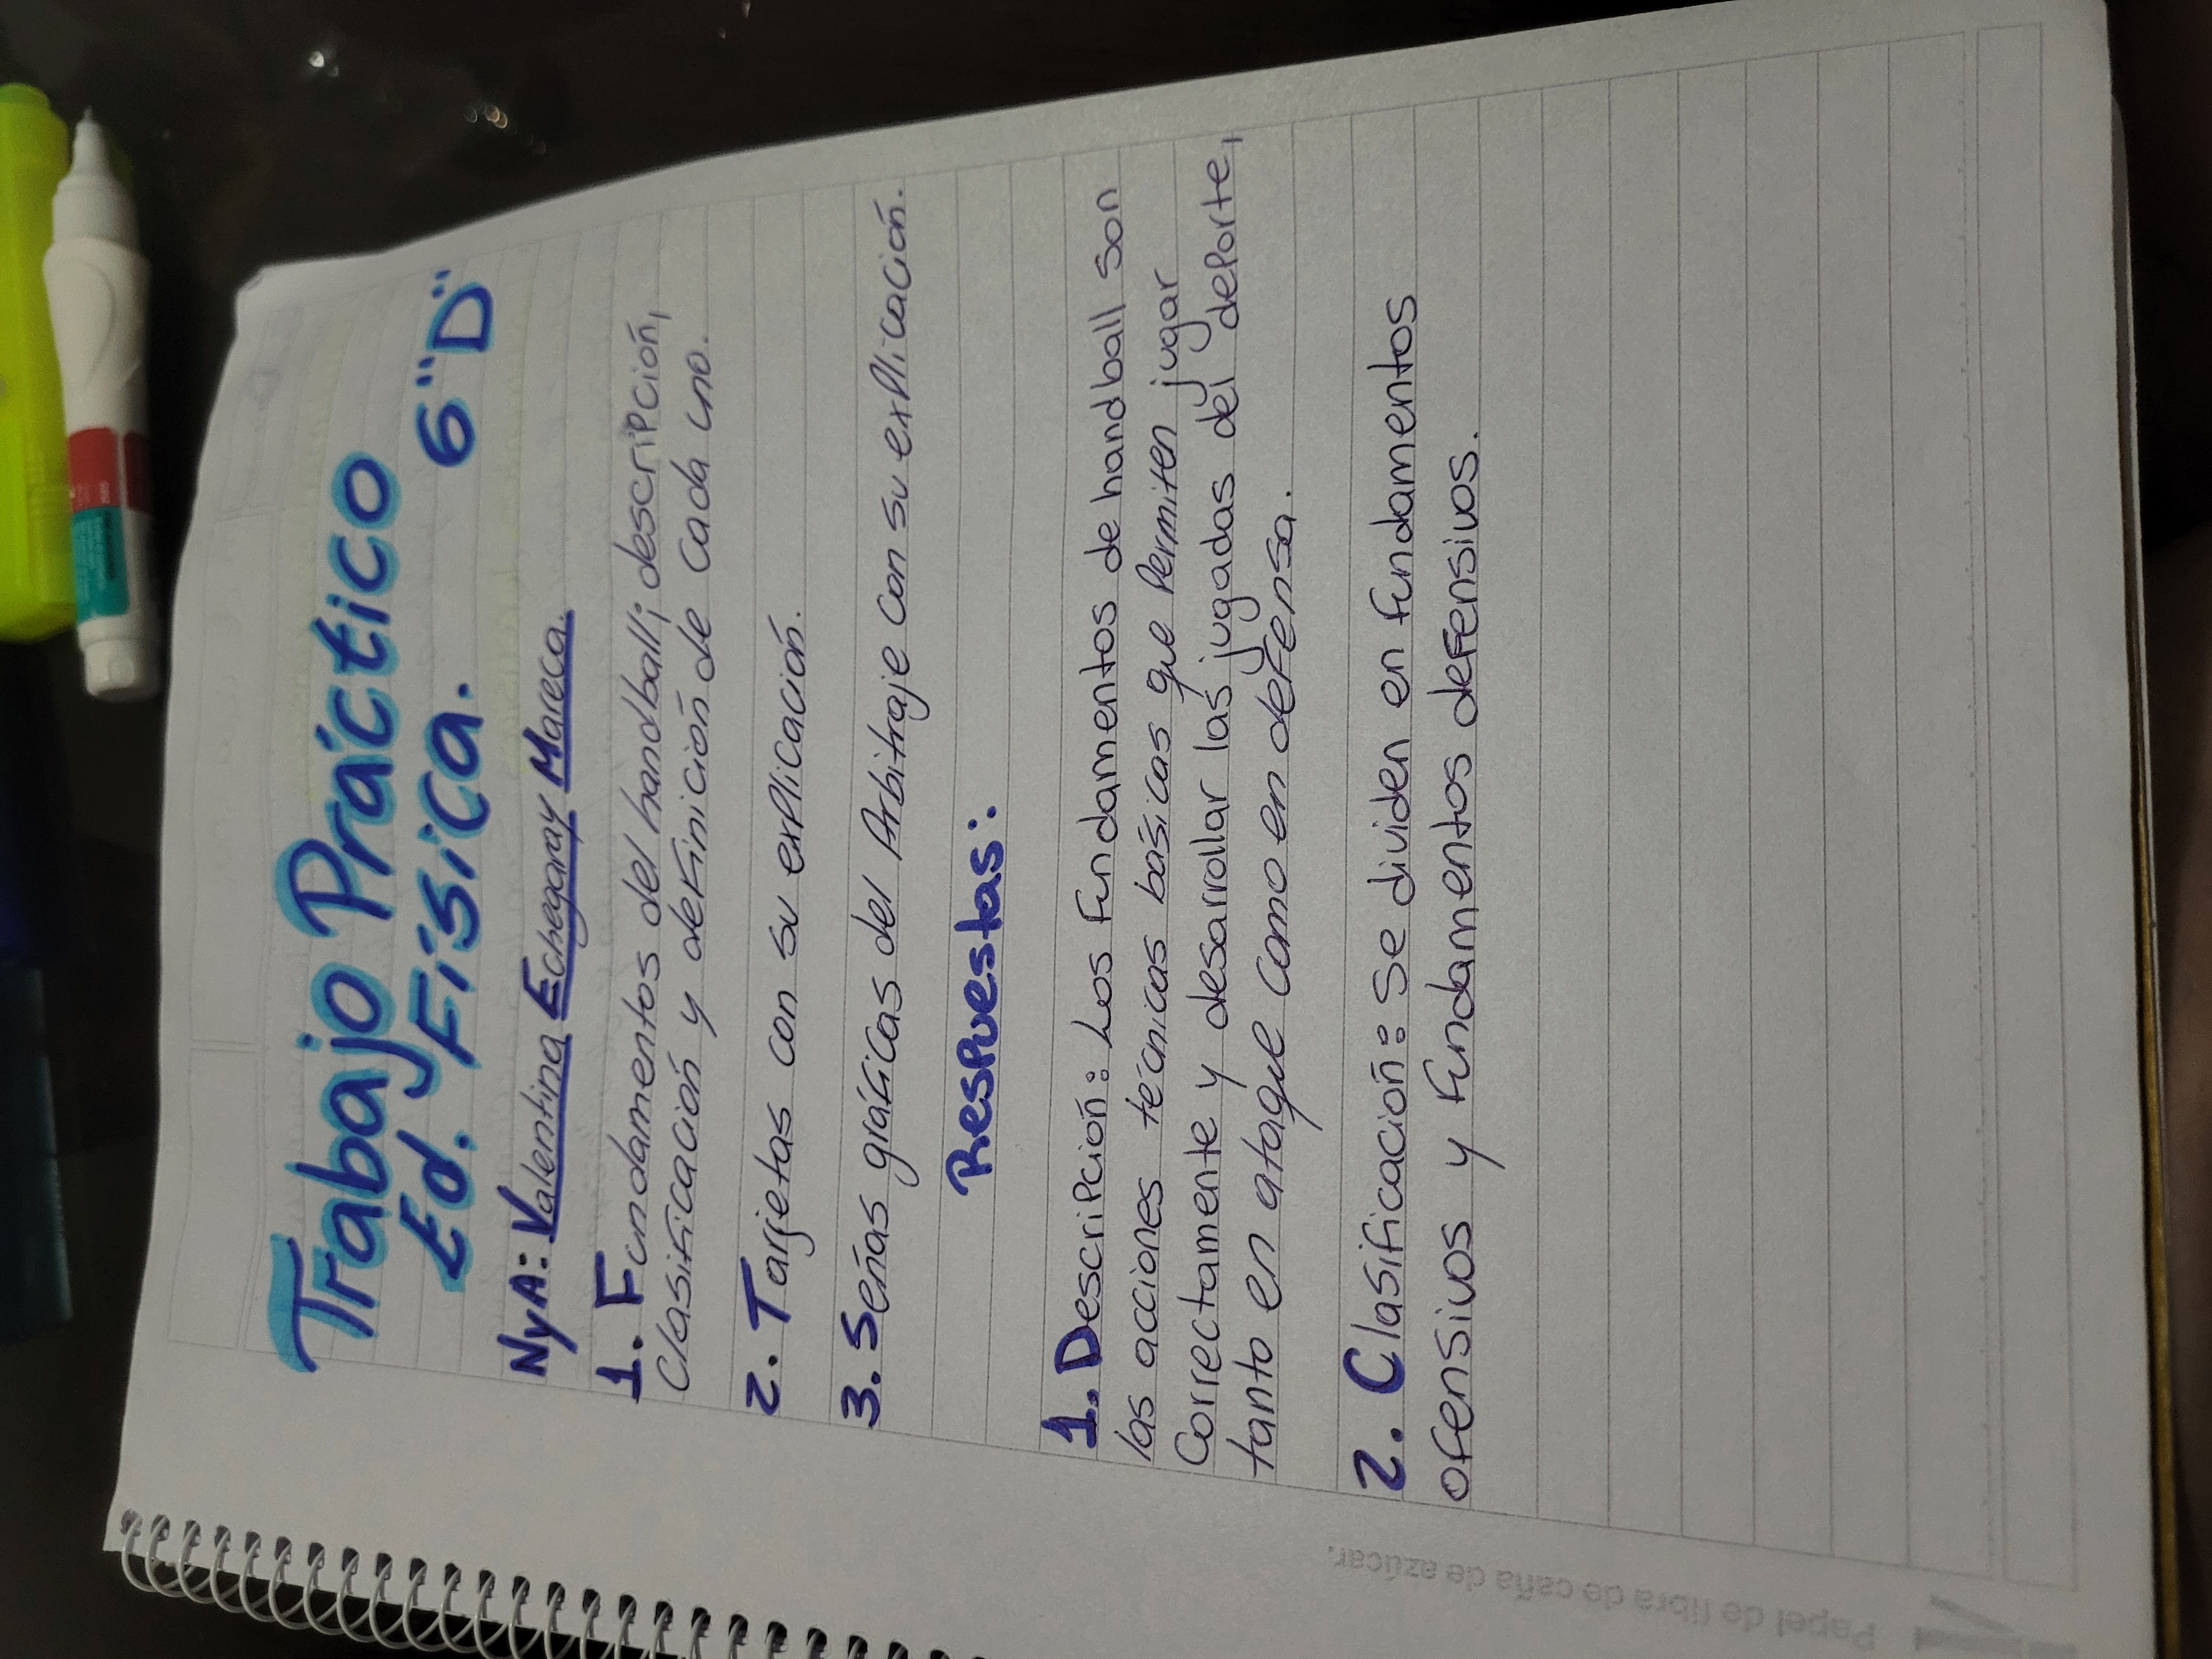 Trabajo Práctico
Ed. Física. 6 "D"
NyA: Valentina Echegaray Mareca.
1. Fundamentos del handball; descripción,
Clasificación y definición de cada uno.
2. Tarjetas con su explicación.
3. Señas gráficas del Arbitraje con su explicación.
Respuestas:
1. Descripción: Los fundamentos de handball son
las acciones técnicas basicas que permiten jugar
Correctamente y desarrollar las jugadas del deporte,
tanto en ataque como en defensa.
2. Clasificación: se dividen en fundamentos
ofensivos y fundamentos defensivos.
Papel de fibra de caña de azúcar.